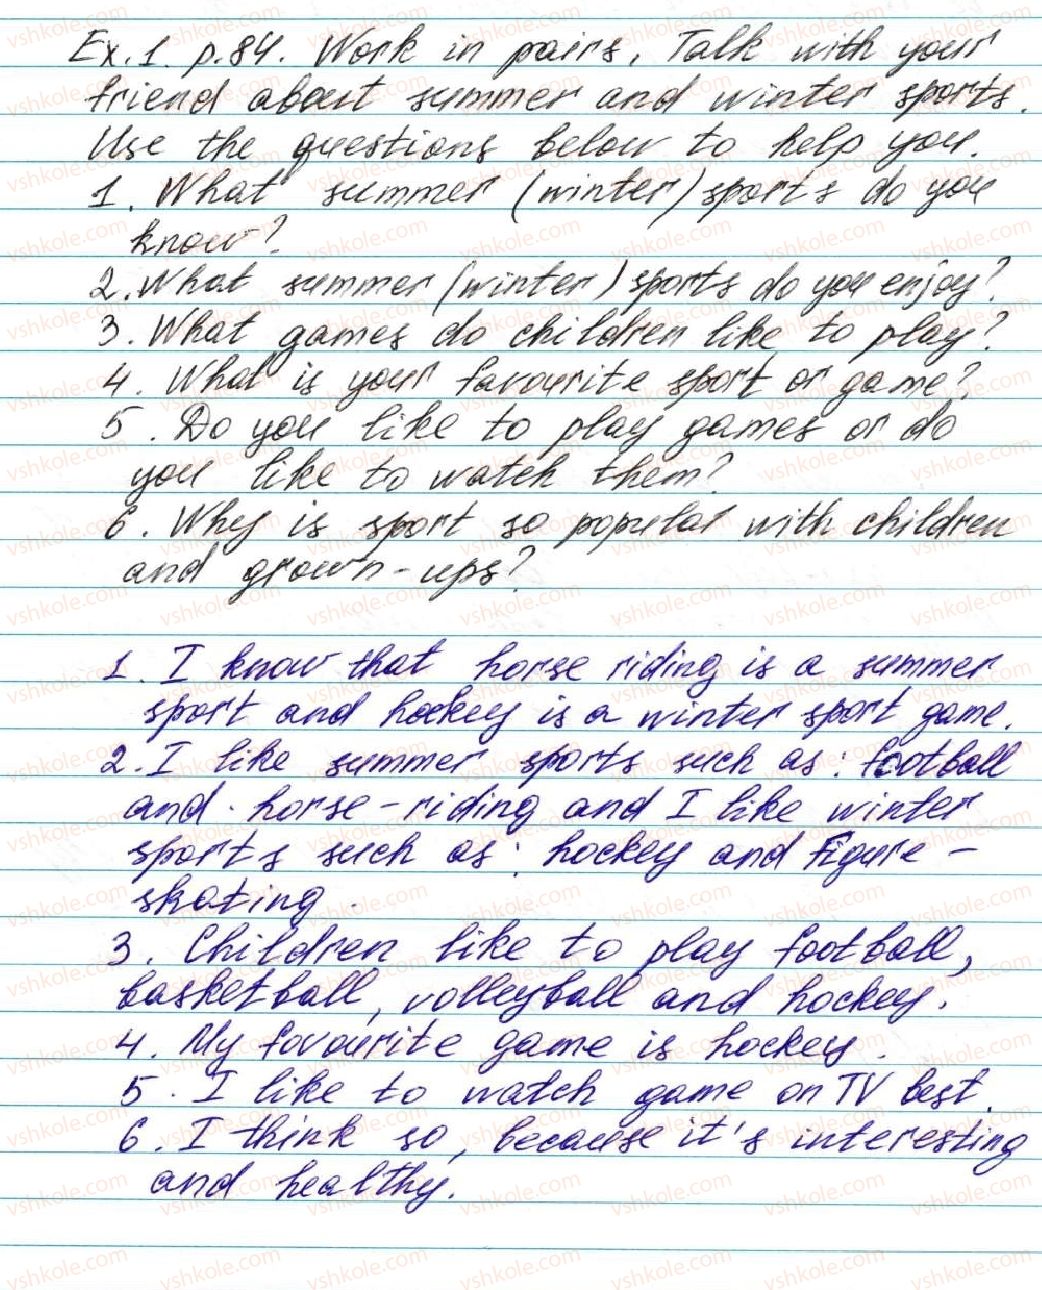 Ex. 1. p. 84. Work in pairs. Talk with your
friend about summer and winter sports.
Use the questions below to help you.
1. What summer (winter) sports do you
know?
2. What summer (winter) sports do you enjoy?
3. What games do children like to play?
4. What is your favourite sport or game?
5. Do you like to play games or do
you like to watch them?
6. Why is sport so popular with children
and grown-ups?
1. I know that horse riding is a summer
sport and hockey is a winter sport game.
2. I like summer sports such as: football
and horse-riding and I like winter
sports such as: hockey and figure-
skating.
3. Children like to play football,
basketball, volleyball and hockey.
4. My favourite game is hockey.
5. I like to watch game on TV best.
6. I think so, because it's interesting
and healthy.